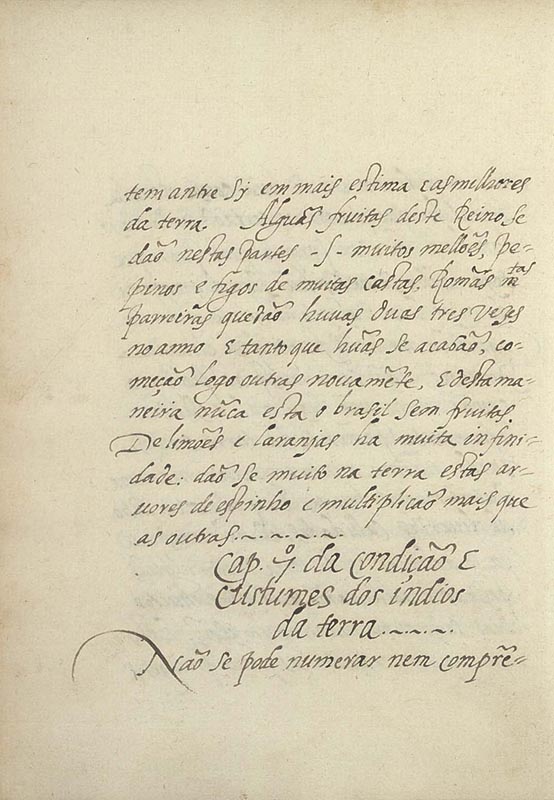 tem antre sy em mais estima e as milhores
da terra. Alguãs fruitas deste Reino se
daõ nestas partes -s- muitos mellões, pe-
pinos e figos de muitas castas. Romãs mtas
parreirãs que dão huuas duas tres vezes
no anno E tanto que huãs se acabão, co-
meção logo outras novamẽte, E desta ma-
neira nũca esta o brasil sem fruitas.
De limões e laranjas ha muita infini-
dade: daõ se muito na terra estas ar-
uores de espinho e multiplicão mais que
as outras.~.~.~.~.~.
Cap. 7.º da condição E
custumes dos indios
da terra.~.~.~.
Não se pode numerar nem comprẽ-